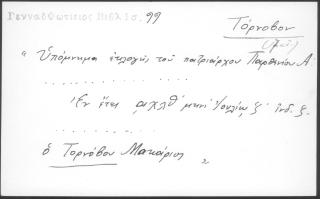 Γενναδιωτισσ Βιβλιο. 99
Τόρνοβον
"Ὑπόμνημα ἐκλογῆς τοῦ πατριάρχου Παρθενίου Α.
. . . . . . . . . . . .
Ἐν ἔτει αχλθ μηνὶ Ἰουλίῳ ξ ἰνδ. ξ.
. . . . . . . . .
ὁ Τορνόβου Μακάριος "